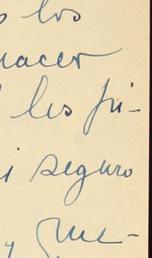 s los
nacer
les pi-
i seguro
y que-